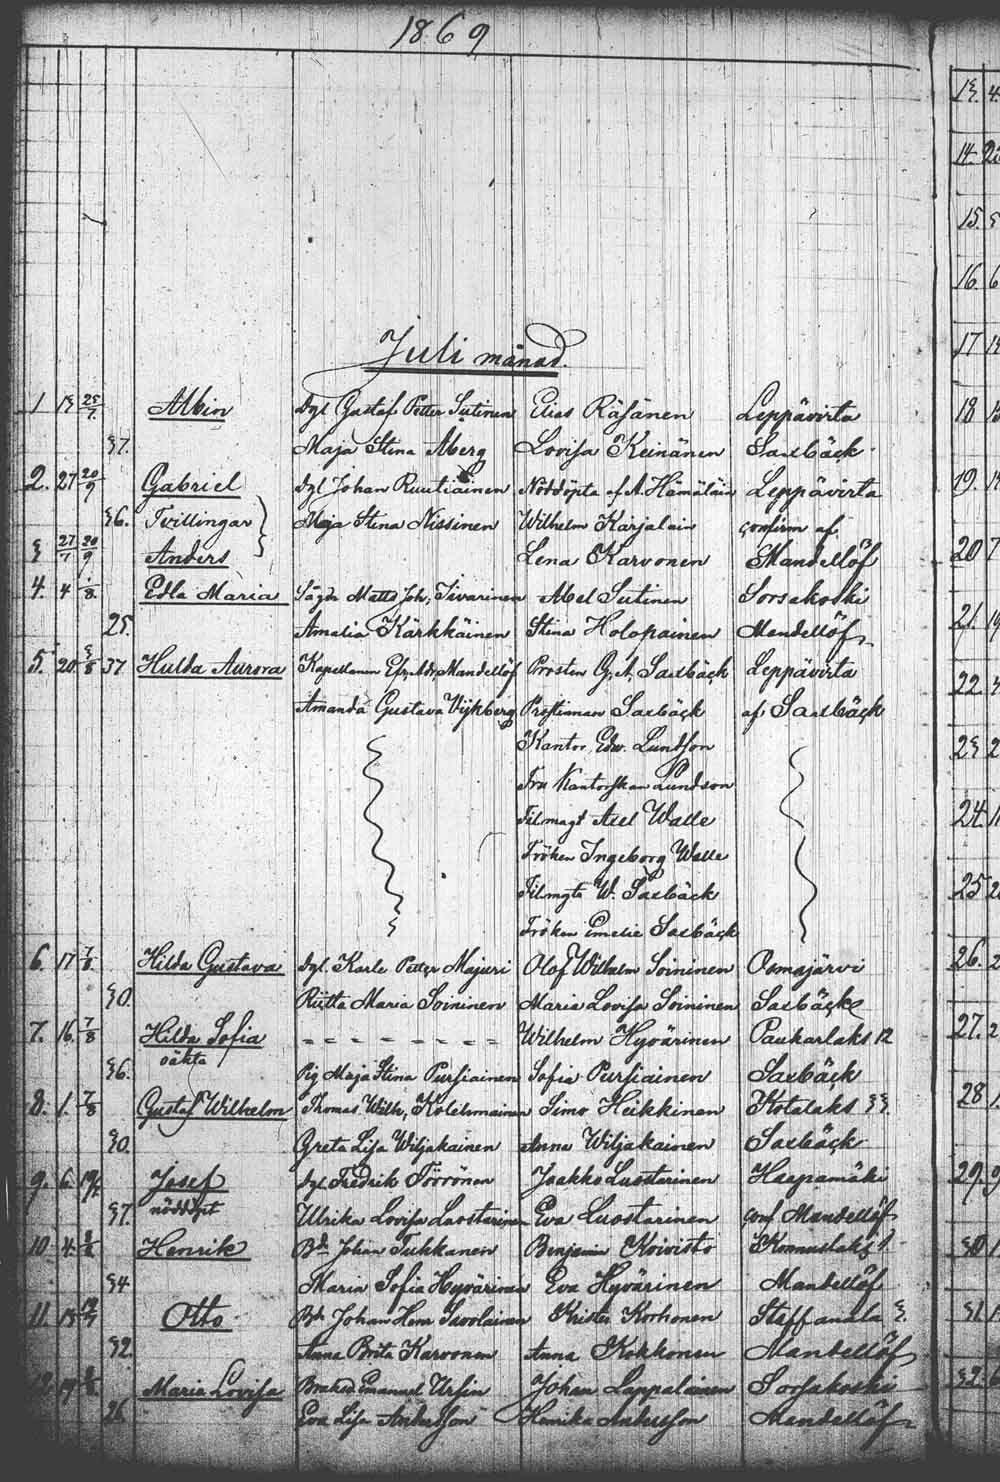 1869
Juli månad.
1 13 25/7 Albin Dgl Gustaf Petter Sutinen Elias Räsänen Leppävirta
37. Maja Stina Åberg Lovisa Keinänen Saxbäck
2. 27 20/9 Gabriel Dgl Johan Ruutiainen Nöddöpta af A. Hämäläin Leppävirta
36. Tvillingar Maja Stina Nissinen Wilhelm Karjalain confirm af
3 27/7 20/9 Anders Lena Karvonen Mandellöf
4. 4 1/8 Edla Maria Matts Joh. Tivarinen Abel Sutinen Sorsakoski
25. Amalia Kärkkäinen Stina Holopainen Mandellöf
5. 20 3/8 37 Hulda Aurora Kapellanen Mandellöf Prosten G. A. Saxbäck Leppävirta
Amanda Gustava Wijkberg Prostinnan Saxbäck af Saxbäck
Kantor Edv. Lundson
Fru Kantorskan Lundson
Filmagt Axel Walle
Fröken Ingeborg Walle
Filmgts W. Saxbäck
Fröken Emelie Saxbäck
6. 17 7/8 Hilda Gustava Dgl. Karle Petter Majuri Olof Wilhelm Soininen Osmajärvi
30. Riitta Maria Soininen Maria Lovisa Soininen Saxbäck
7. 16 7/8 Hilda Sofia Wilhelm Hyvärinen Paukarlaks 12
oäkta
36. Pig Maja Stina Pursiainen Sofia Pursiainen Saxbäck
8. 1. 7/8 Gustaf Wilhelm Thomas Wilh. Kolehmainen Simo Heikkinen Kotalaks 33.
30. Greta Lisa Wiljakainen Anna Wiljakainen Saxbäck
9. 6 Josef Dgl Fredrik Törrönen Jaakko Luostarinen Haapamäki
37. nöddöpt Ulrika Lovisa Luostarinen Eva Luostarinen conf Mandellöf
10. 4. Henrik Johan Tukkanen Benjamin Koivisto
34 Maria Sofia Hyvärinen Eva Hyvärinen Mandellöf
11. Otto Johan Henr Savolainen Krister Korhonen Staffansla 3.
32. Anna Brita Karvonen Anna Kokkonen Mandellöf
12. 19 Maria Lovisa Emanuel Ursin Johan Lappalainen Sorsakoski
26 Eva Lisa Andersson Henrika Andersson Mandellöf
13. 4.
14.
15. 3
16. 6
17
18
19.
20 7
21.
22. 4
23 2
24.
25
26. 2
27. 2
28
29.
30
31.
32. 6